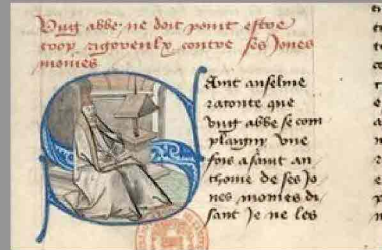 Vng abbe ne doit point estre
trop rigoreulx contre ses Jones
moines
Saint anselme
raconte que
vng abbe se com
plaigny vne
fois a saint an
thoine de ses Jo
nes moines di
sant Je ne les